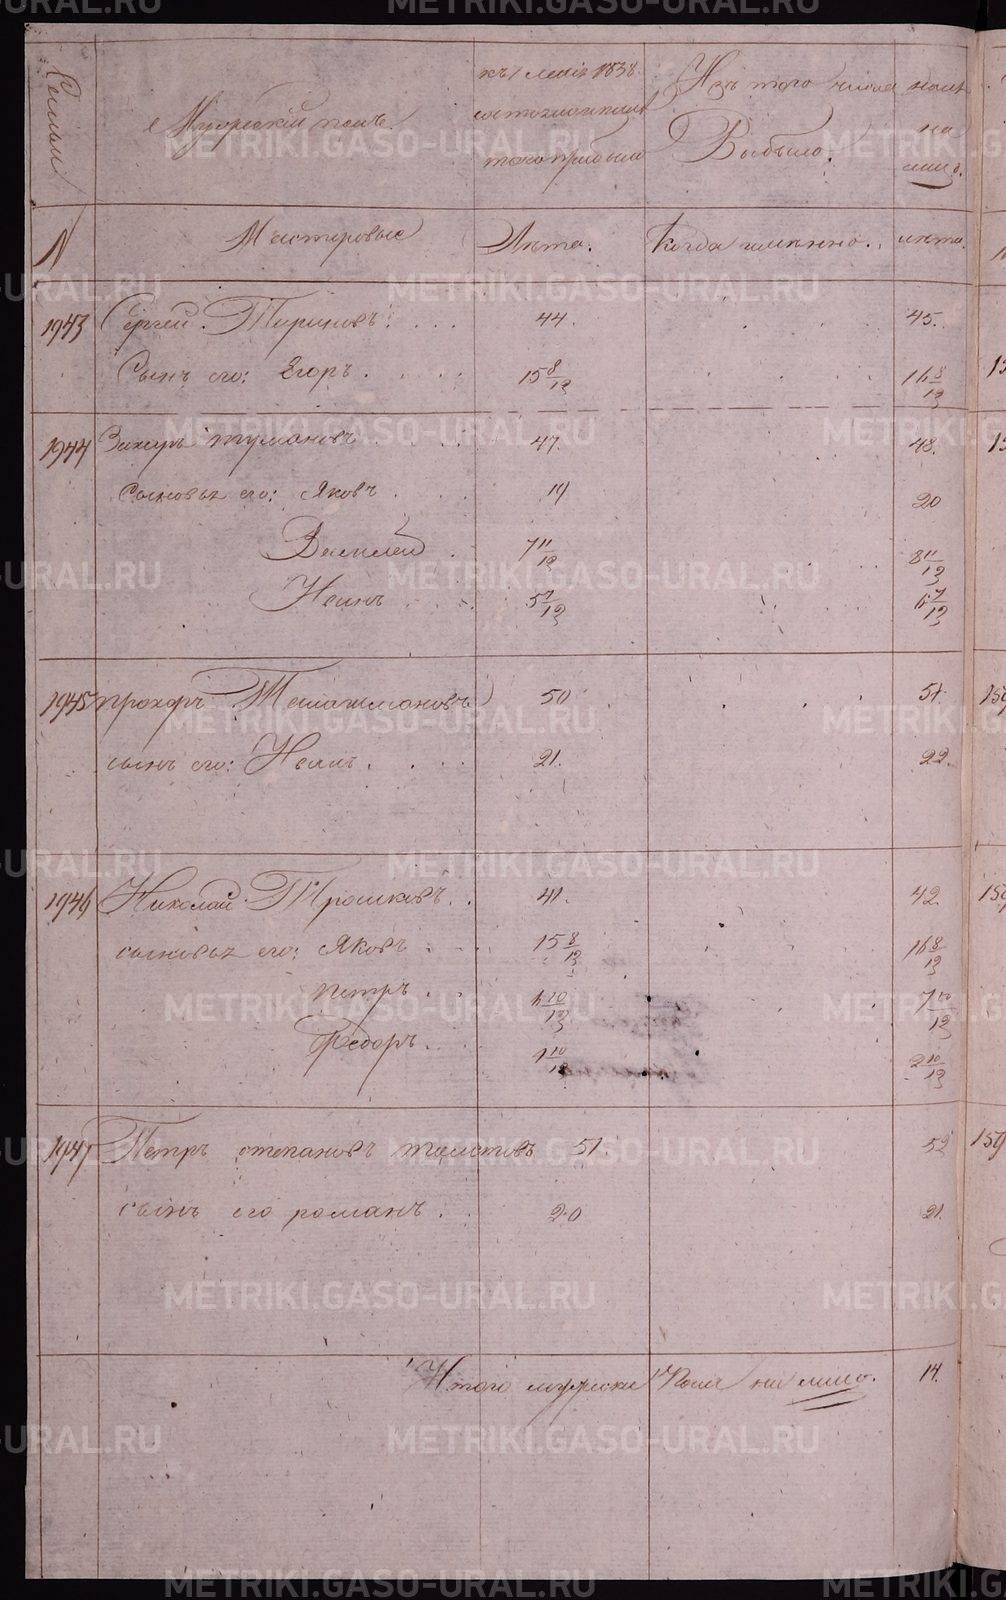 Семьи
Мужеский полъ.
къ 1 мая 1838.
состояло и после
того прибыло
Изъ того числа
Выбыло.
ныне
на
лицо.
N
Мастеровые
Лѣта.
Когда именно.
лѣта.
1943 Сергей 44. 45.
Сынъ его: Егоръ 15 8/12 16 8/12
1944 Захаръ Тумановъ 47. 48.
Сыновья его: Яковъ 19 20
Василей 7 11/12 8 11/12
Иванъ 5 7/12 6 7/12
1945 Прохоръ 50 51.
сынъ его: 21. 22.
1946 Николай Трошковъ 41. 42.
сыновья его: Яковъ 15 8/12 16 8/12
Петръ 6 10/12 7 10/12
Федоръ 1 10/12 2 10/12
1947 Петръ степановъ 51. 52
сынъ его романъ 20 21.
Итого мужеска пола на лицо. 14.
METRIKI.GASO-URAL.RU